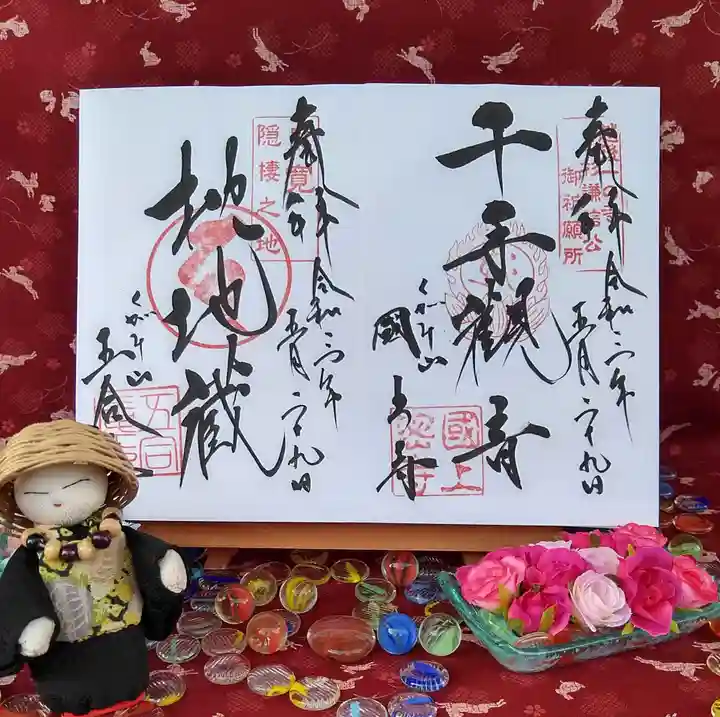 奉拝
令和二年
五月二十九日
上杉謙信公
御祈願所
千手観音
くがみ山
國上寺
國上
奉拝
令和二年
五月二十九日
隠棲之地
地蔵
くがみ山
五合
五合